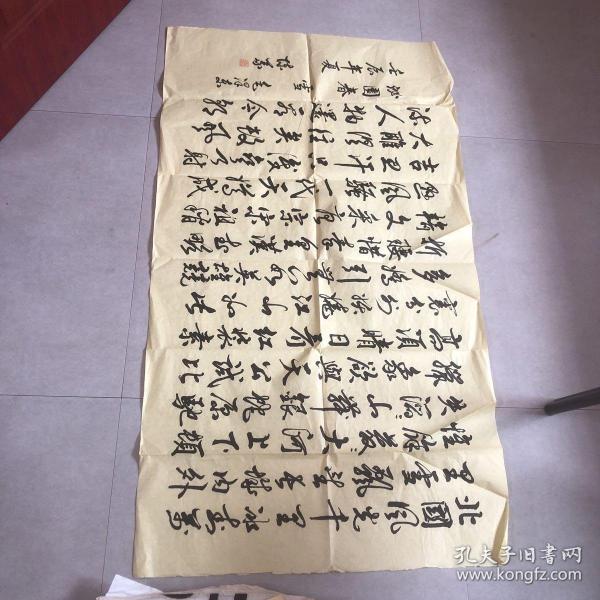 北國風光千里冰封萬
里雪飄望長城內外
惟餘莽莽大河上下頓
失滔滔山舞銀蛇原馳
蠟象欲與天公試比
高須晴日看紅裝素
裹分外妖嬈江山如此
多嬌引無數英雄競
折腰惜秦皇漢武略
輸文采唐宗宋祖稍
遜風騷一代天驕成
吉思汗只識彎弓射
大雕俱往矣數風
流人物還看今朝
沁園春 雪
壬辰年夏
孔夫子旧书网
www.kongfz.com